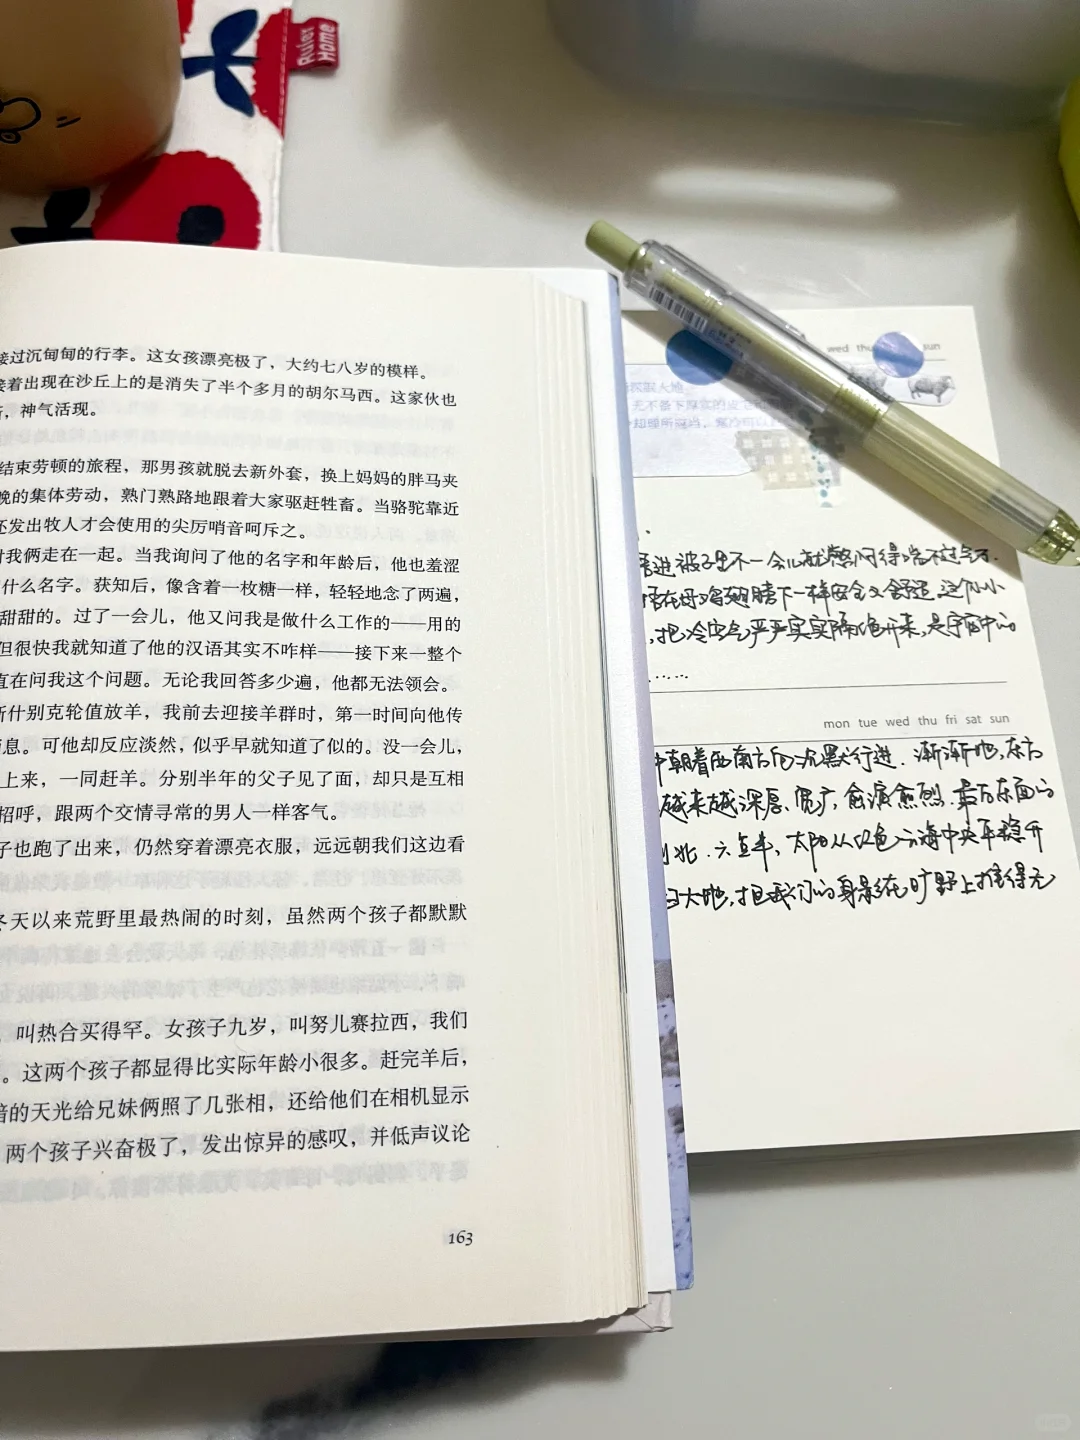 Ruler
Home
接过沉甸甸的行李。这女孩漂亮极了，大约七八岁的模样。
接着出现在沙丘上的是消失了半个多月的胡尔马西。这家伙也
，神气活现。
结束劳顿的旅程，那男孩就脱去新外套，换上妈妈的胖马夹
晚的集体劳动，熟门熟路地跟着大家驱赶牲畜。当骆驼靠近
还发出牧人才会使用的尖厉哨音呵斥之。
我俩走在一起。当我询问了他的名字和年龄后，他也羞涩
什么名字。获知后，像含着一枚糖一样，轻轻地念了两遍，
甜甜的。过了一会儿，他又问我是做什么工作的——用的
但很快我就知道了他的汉语其实不咋样——接下来一整个
直在问我这个问题。无论我回答多少遍，他都无法领会。
斯什别克轮值放羊，我前去迎接羊群时，第一时间向他传
息。可他却反应淡然，似乎早就知道了似的。没一会儿，
上来，一同赶羊。分别半年的父子见了面，却只是互相
招呼，跟两个交情寻常的男人一样客气。
子也跑了出来，仍然穿着漂亮衣服，远远朝我们这边看
冬天以来荒野里最热闹的时刻，虽然两个孩子都默默
叫热合买得罕。女孩子九岁，叫努儿赛拉西，我们
。这两个孩子都显得比实际年龄小很多。赶完羊后，
暗的天光给兄妹俩照了几张相，还给他们在相机显示
两个孩子兴奋极了，发出惊异的感叹，并低声议论
163
wed thu sun
进被子里不一会儿就憋闷得喘不过气了.
在母鸡翅膀下一样安全又舒适.这个小小
，把冷空气严严实实隔绝开来，是宇宙中的
……
mon tue wed thu fri sat sun
朝着西南方向沉默行进.渐渐地，东方
越来越深厚、宽广，愈演愈烈.最后东面的
北.六点半，太阳从红色云海中央平稳升
大地，把我们的身影在旷野上推得无